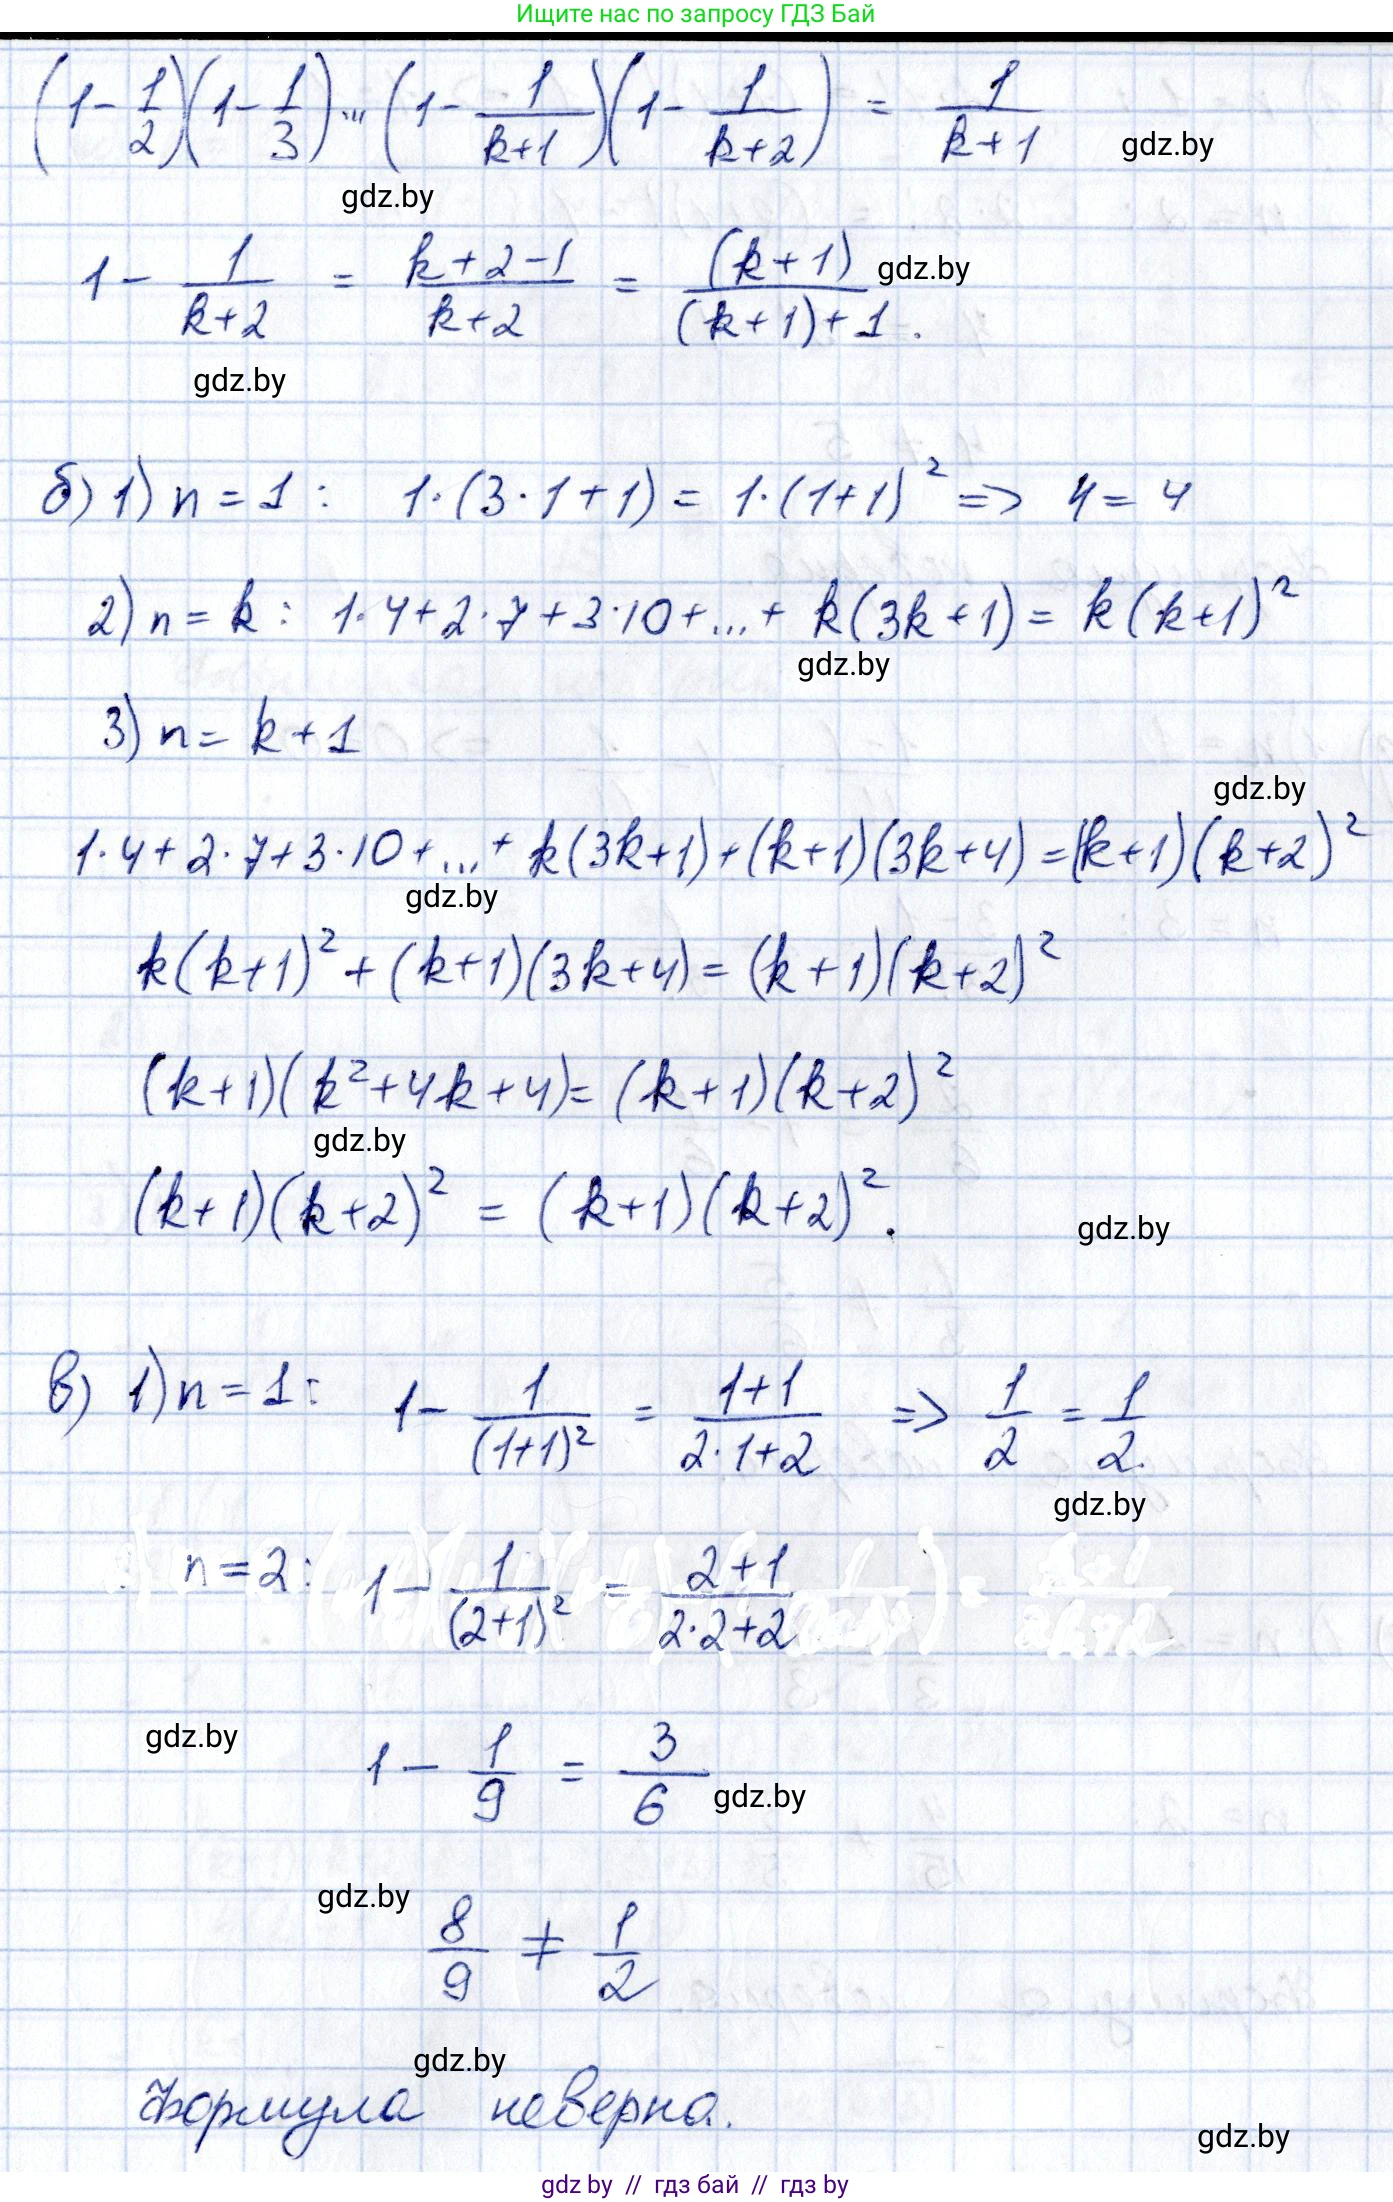 Ищите нас по запросу ГДЗ Бай
(1 - 1/2)(1 - 1/3)...(1 - 1/(k+1))(1 - 1/(k+2)) = 1/(k+1)
gdz.by
gdz.by
1 - 1/(k+2) = (k+2-1)/(k+2) = (k+1)/((k+1)+1).
gdz.by
gdz.by
б) 1) n = 1 : 1·(3·1+1) = 1·(1+1)² => 4 = 4
2) n = k : 1·4+2·7+3·10+...+ k(3k+1) = k(k+1)²
gdz.by
3) n = k+1
gdz.by
1·4+2·7+3·10+...+ k(3k+1)+(k+1)(3k+4) = (k+1)(k+2)²
gdz.by
k(k+1)²+(k+1)(3k+4) = (k+1)(k+2)²
(k+1)(k²+4k+4) = (k+1)(k+2)²
gdz.by
(k+1)(k+2)² = (k+1)(k+2)².
gdz.by
в) 1) n = 1 : 1 - 1/(1+1)² = (1+1)/(2·1+2) => 1/2 = 1/2.
gdz.by
n = 2 : 1 - 1/(2+1)² = (2+1)/(2·2+2)
gdz.by
1 - 1/9 = 3/6
gdz.by
gdz.by
8/9 ≠ 1/2
gdz.by
Формула неверна.
gdz.by
gdz by // гдз бай // гдз by